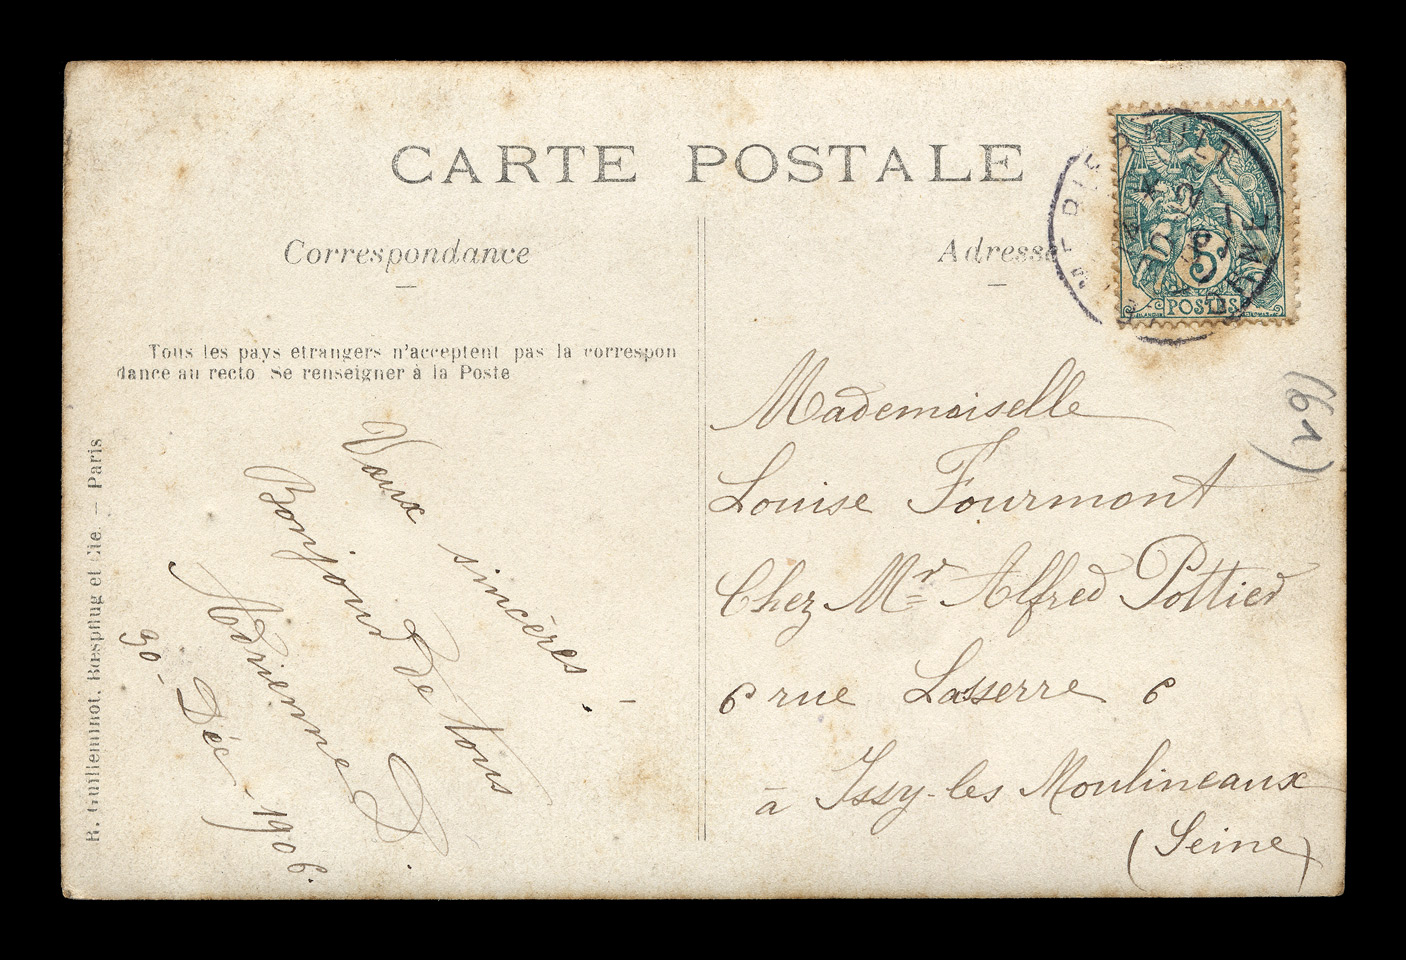 CARTE POSTALE
Correspondance
Adresse
Tous les pays etrangers n'acceptent pas la correspon
dance au recto Se renseigner à la Poste
R. Guilleminot, Bœspflug et Cie. – Paris
Vœux sincères.
Bonjour de tous
Adrienne D.
30 - Déc - 1906.
5
POSTES
(61)
Mademoiselle
Louise Fourmont
Chez Mr Alfred Pottier
6 rue Lasserre 6
à Issy-les Moulineaux
(Seine)